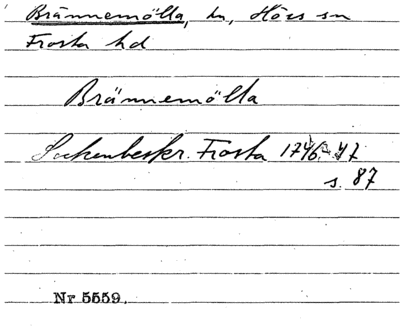 Brännemölla, hn, Hörs sn
Frosta hd
Brännemölla
Sockenbeskr. Frosta 1746-47
s. 87
Nr 5559.